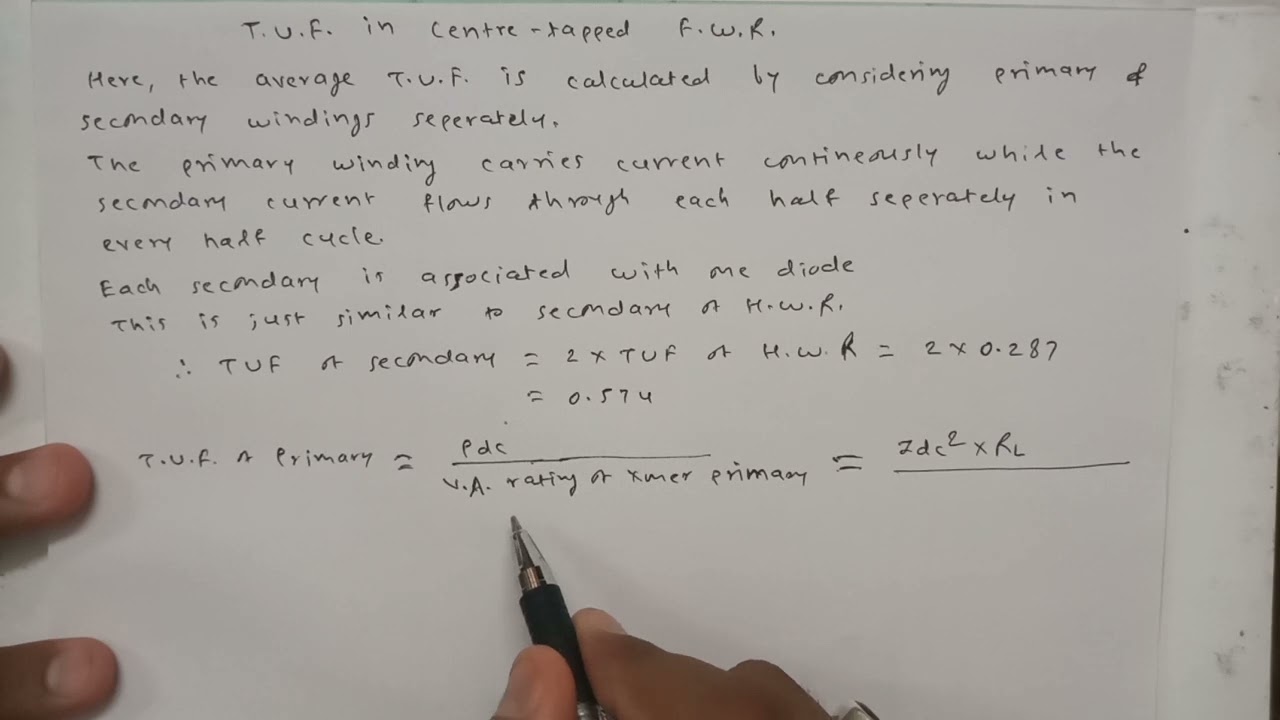 T.U.F. in centre-tapped F.W.R.
Here, the average T.U.F. is calculated by considering primary &
secondary windings seperately.
The primary winding carries current contineously while the
secondary current flows through each half seperately in
every half cycle.
Each secondary is associated with one diode
This is just similar to secondary of H.W.R.
∴ TUF of secondary = 2 × TUF of H.W.R = 2 × 0.287
= 0.574
T.U.F. of Primary = Pdc / V.A. rating of xmer primary = Idc² × RL